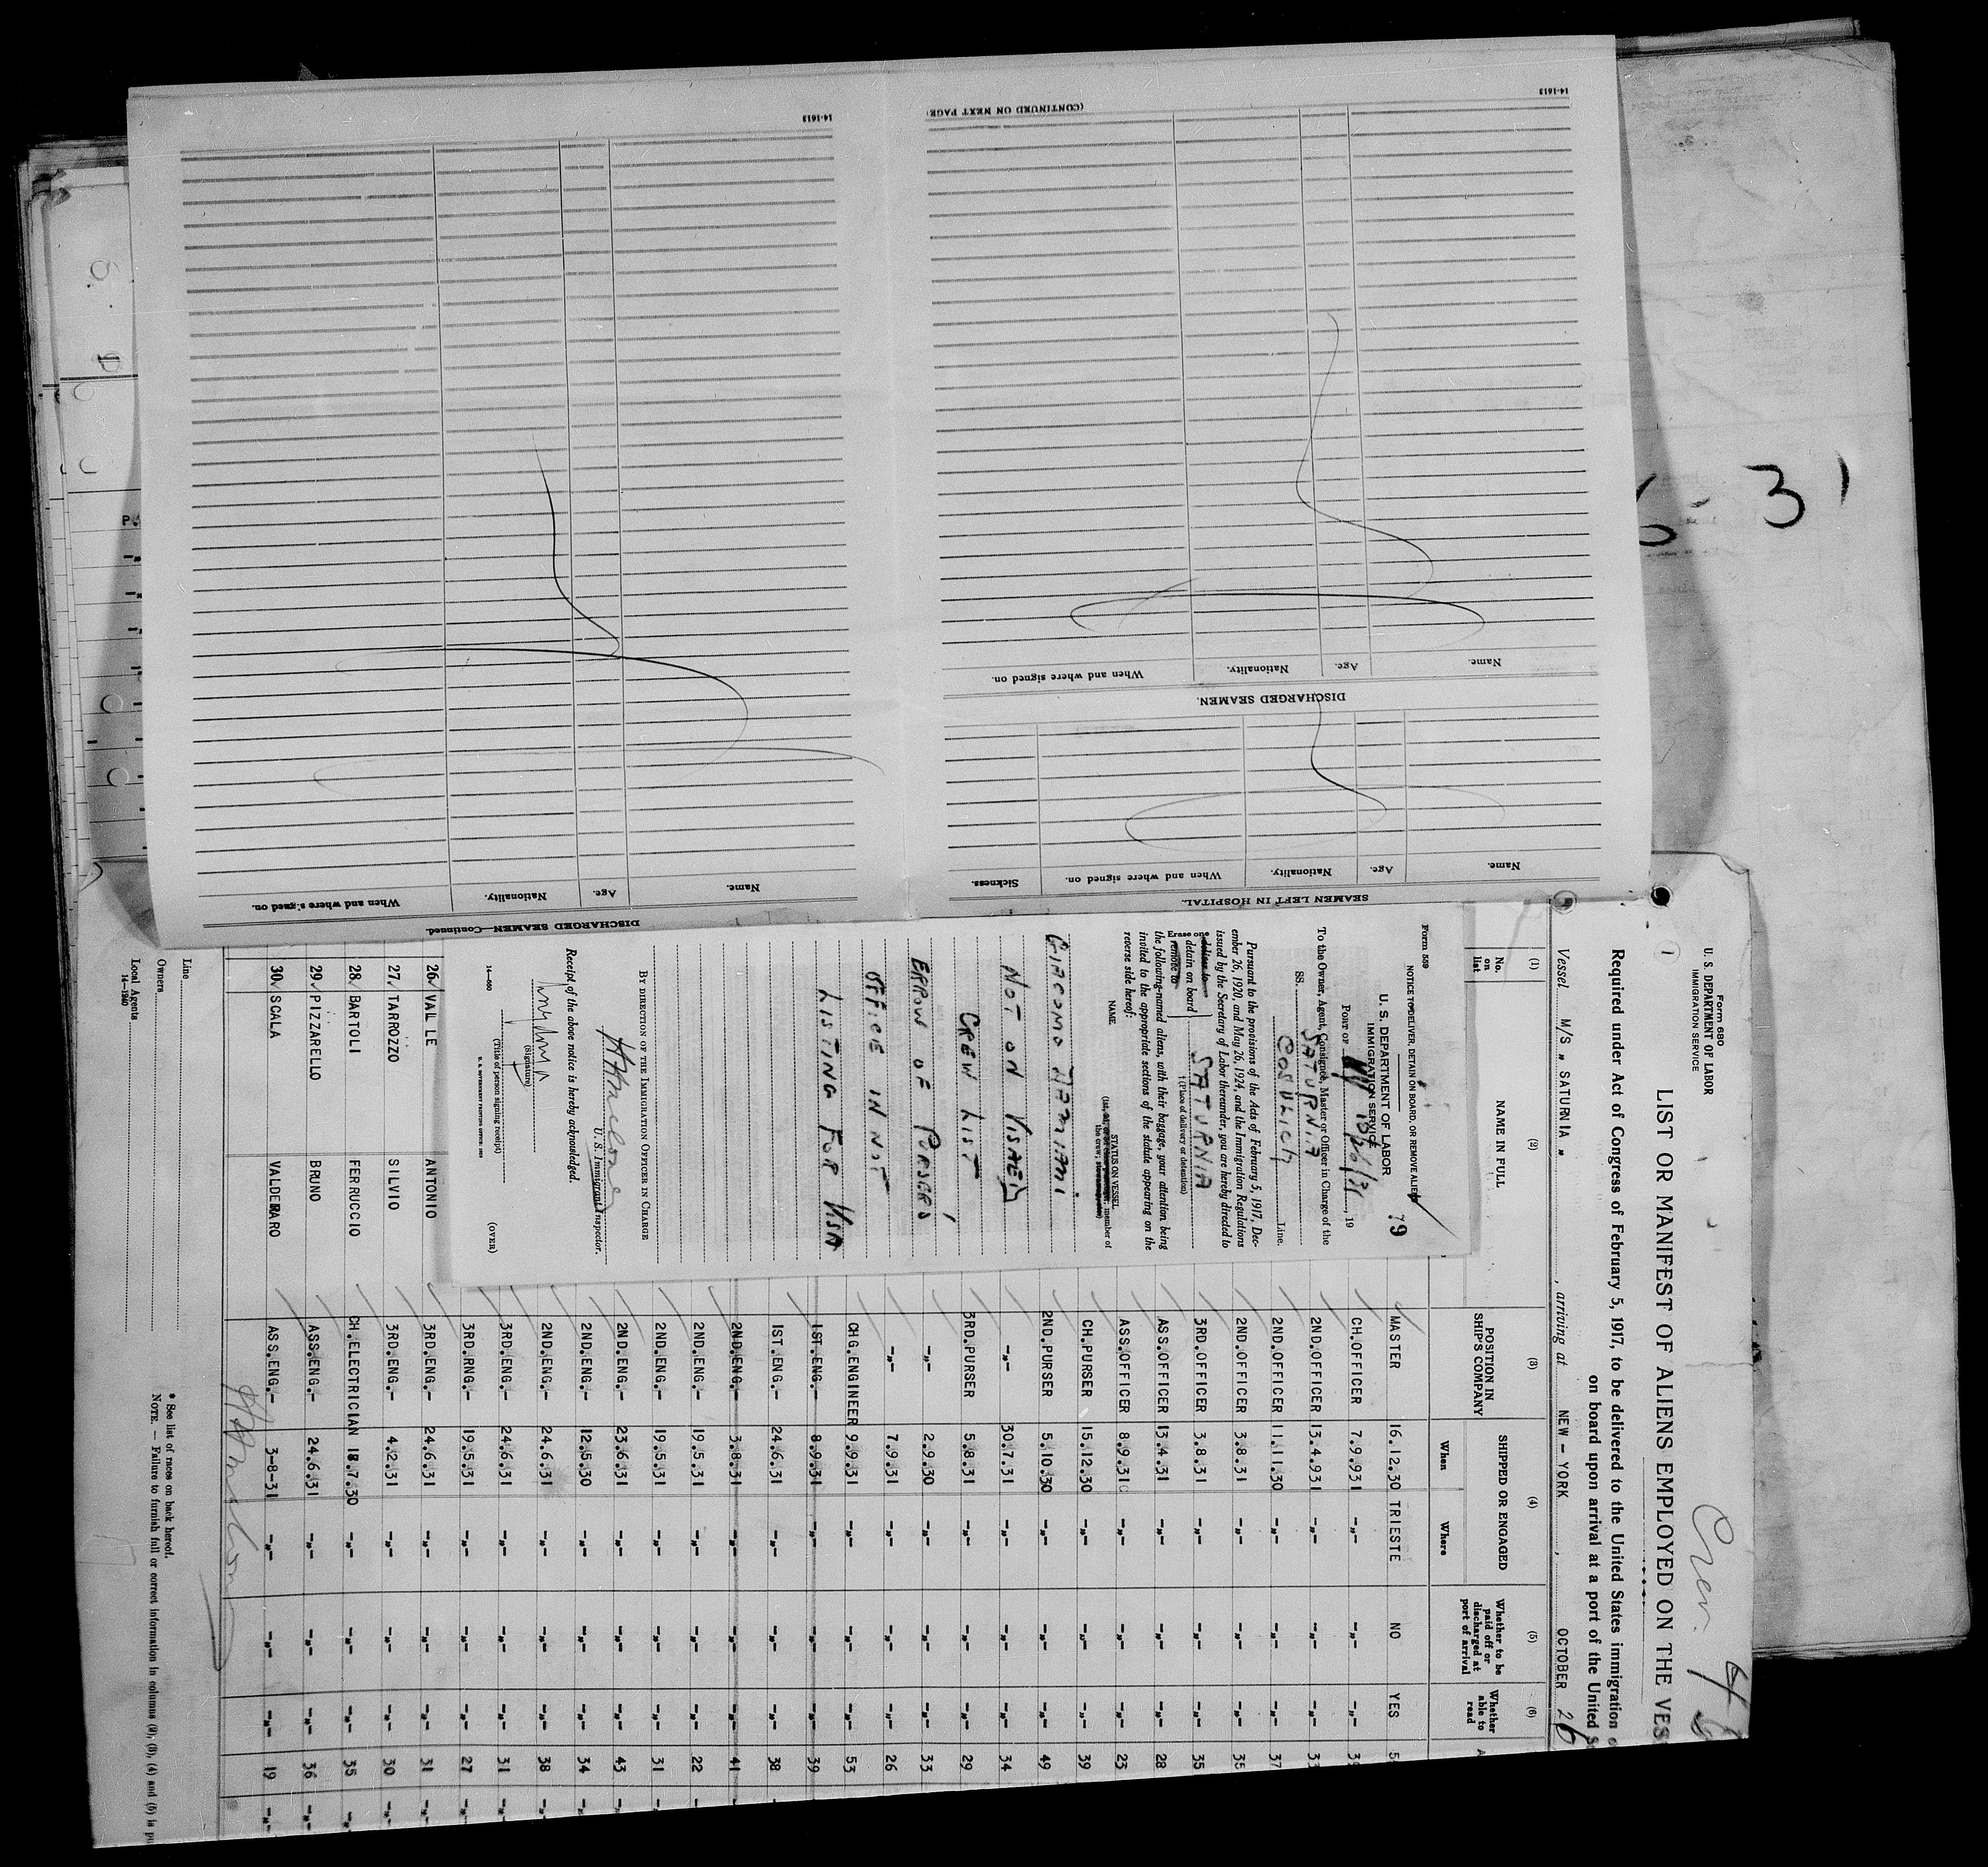 14-1613
(CONTINUED ON NEXT PAGE)
14-1613
Name. Age. Nationality. When and where signed on.
DISCHARGED SEAMEN.
Name. Age. Nationality. When and where signed on. Sickness.
SEAMEN LEFT IN HOSPITAL.
Name. Age. Nationality. When and where signed on.
DISCHARGED SEAMEN—Continued.
3
Crew
Form 680
U. S. DEPARTMENT OF LABOR
IMMIGRATION SERVICE
1
LIST OR MANIFEST OF ALIENS EMPLOYED ON THE VES
Required under Act of Congress of February 5, 1917, to be delivered to the United States immigration
on board upon arrival at a port of the United S
Vessel M/S „ SATURNIA „ , arriving at NEW - YORK , OCTOBER 26
(1) (2) (3) (4) (5) (6)
No. on list
NAME IN FULL
POSITION IN SHIP'S COMPANY
SHIPPED OR ENGAGED
When Where
Whether to be paid off or discharged at port of arrival
Whether able to read
MASTER 16.12.30 TRIESTE NO YES
CH.OFFICER 7.9.931 -„- -„- -„-
2ND.OFFICER 13.4.931 -„- -„- -„-
2ND.OFFICER 11.11.30 -„- -„- -„- 37
2ND.OFFICER 3.8.31 -„- -„- -„- 35
3RD.OFFICER 3.8.31 -„- -„- -„- 35
ASS.OFFICER 13.4.31 -„- -„- -„- 28
ASS.OFFICER 8.9.31 -„- -„- -„- 23
CH.PURSER 15.12.30 -„- -„- -„- 39
2ND.PURSER 5.10.30 -„- -„- -„- 49
-„- 30.7.31 -„- -„- -„- 34
3RD.PURSER 5.8.31 -„- -„- -„- 29
-„- 2.9.30 -„- -„- -„- 33
-„- 7.9.31 -„- -„- -„- 26
CH.ENGINEER 9.9.31 -„- -„- -„- 53
1ST.ENG.- 8.9.31 -„- -„- -„- 39
1ST.ENG.- 24.6.31 -„- -„- -„- 38
2ND.ENG.- 3.8.31 -„- -„- -„- 41
2ND.ENG.- 19.5.31 -„- -„- -„- 22
2ND.ENG.- 19.5.31 -„- -„- -„- 31
2ND.ENG.- 23.6.31 -„- -„- -„- 43
2ND.ENG.- 12.5.30 -„- -„- -„- 34
2ND.ENG.- 24.6.31 -„- -„- -„- 38
3RD.ENG.- 24.6.31 -„- -„- -„- 31
3RD.RNG.- 19.5.31 -„- -„- -„- 27
26 VALLE ANTONIO 3RD.ENG.- 24.6.31 -„- -„- -„- 31 -„-
27 TARROZZO SILVIO 3RD.ENG.- 4.2.31 -„- -„- -„- 30 -„-
28 BARTOLI FERRUCCIO CH.ELECTRICIAN 18.7.30 -„- -„- -„- 35 -„-
29 PIZZARELLO BRUNO ASS.ENG.- 24.6.31 -„- -„- -„- 36 -„-
30 SCALA VALDEMARO ASS.ENG.- 3-8-31 -„- -„- -„- 19 -„-
Line
Owners
Local Agents
14-1240
* See list of races on back hereof.
NOTE. — Failure to furnish full or correct information in columns (2), (3), (4) and (5) is
Form 559
NOTICE TO DELIVER, DETAIN ON BOARD, OR REMOVE ALIENS
79
U. S. DEPARTMENT OF LABOR
IMMIGRATION SERVICE
PORT OF NY 10/26/31, 19
To the Owner, Agent, Consignee, Master or Officer in Charge of the
SS. SATURNIA
COSULICH Line.
Pursuant to the provisions of the Acts of February 5, 1917, December 26, 1920, and May 26, 1924, and the Immigration Regulations
issued by the Secretary of Labor thereunder, you are hereby directed to
deliver to
detain on board SATURNIA
remove to
†(Place of delivery or detention)
the following-named aliens, with their baggage, your attention being
invited to the appropriate sections of the statute appearing on the
reverse side hereof:
NAME STATUS ON VESSEL
GIACOMO DAMIANI
NOT ON VISAED
CREW LIST
ERROR OF PURSERS
OFFICE IN NOT
LISTING FOR VISA
BY DIRECTION OF THE IMMIGRATION OFFICER IN CHARGE
U. S. Immigrant Inspector.
Receipt of the above notice is hereby acknowledged.
(Signature)
(Title of person signing receipt)
14-660
(OVER)